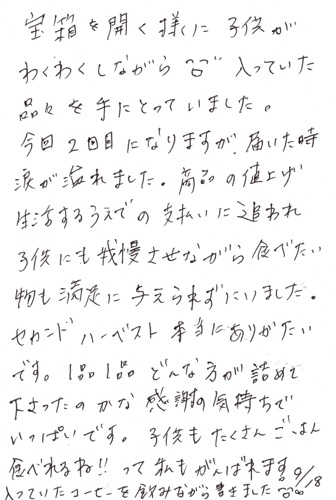 宝箱を開く様に子供が
わくわくしながら^o^入っていた
品々を手にとっていました。
今回2回目になりますが、届いた時
涙が溢れました。商品の値上げ
生活するうえでの支払いに追われ
子供にも我慢させながら食べたい
物も満足に与えられずにいました。
セカンドハーベスト本当にありがたい
です。1品1品どんな方が詰めて
下さったのかな感謝の気持ちで
いっぱいです。子供もたくさんごはん
食べれるね!!って私もがんばれます。
入っていたコーヒーを飲みながら書きました 9/18